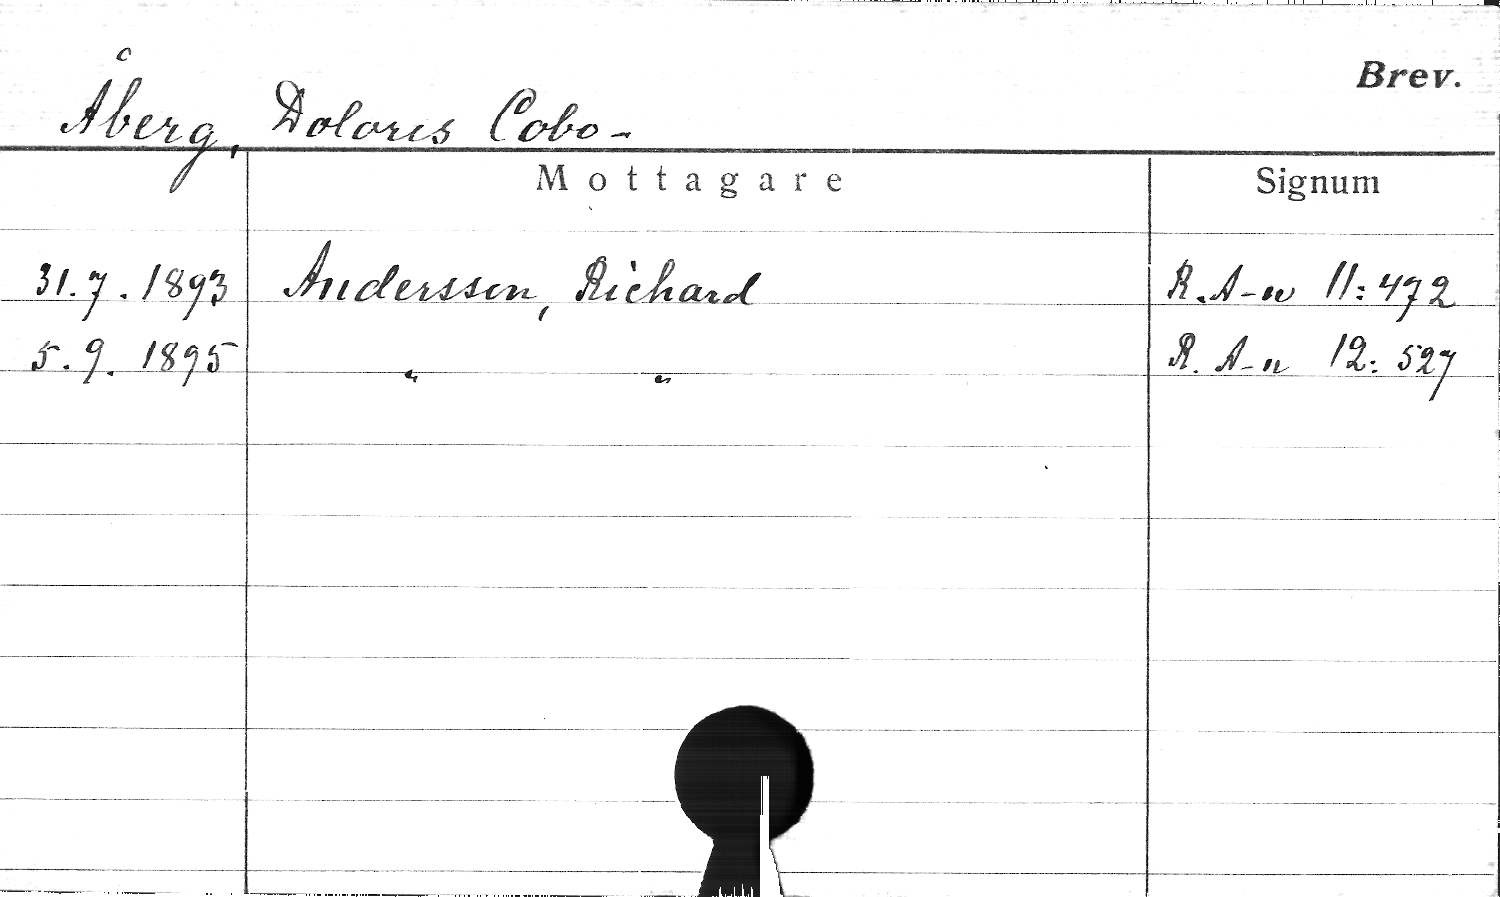 Brev.
Åberg, Dolores Cobo-
Mottagare Signum
31.7.1893 Andersson, Richard R. A-n 11:472
5.9.1895 " " R. A-n 12:527